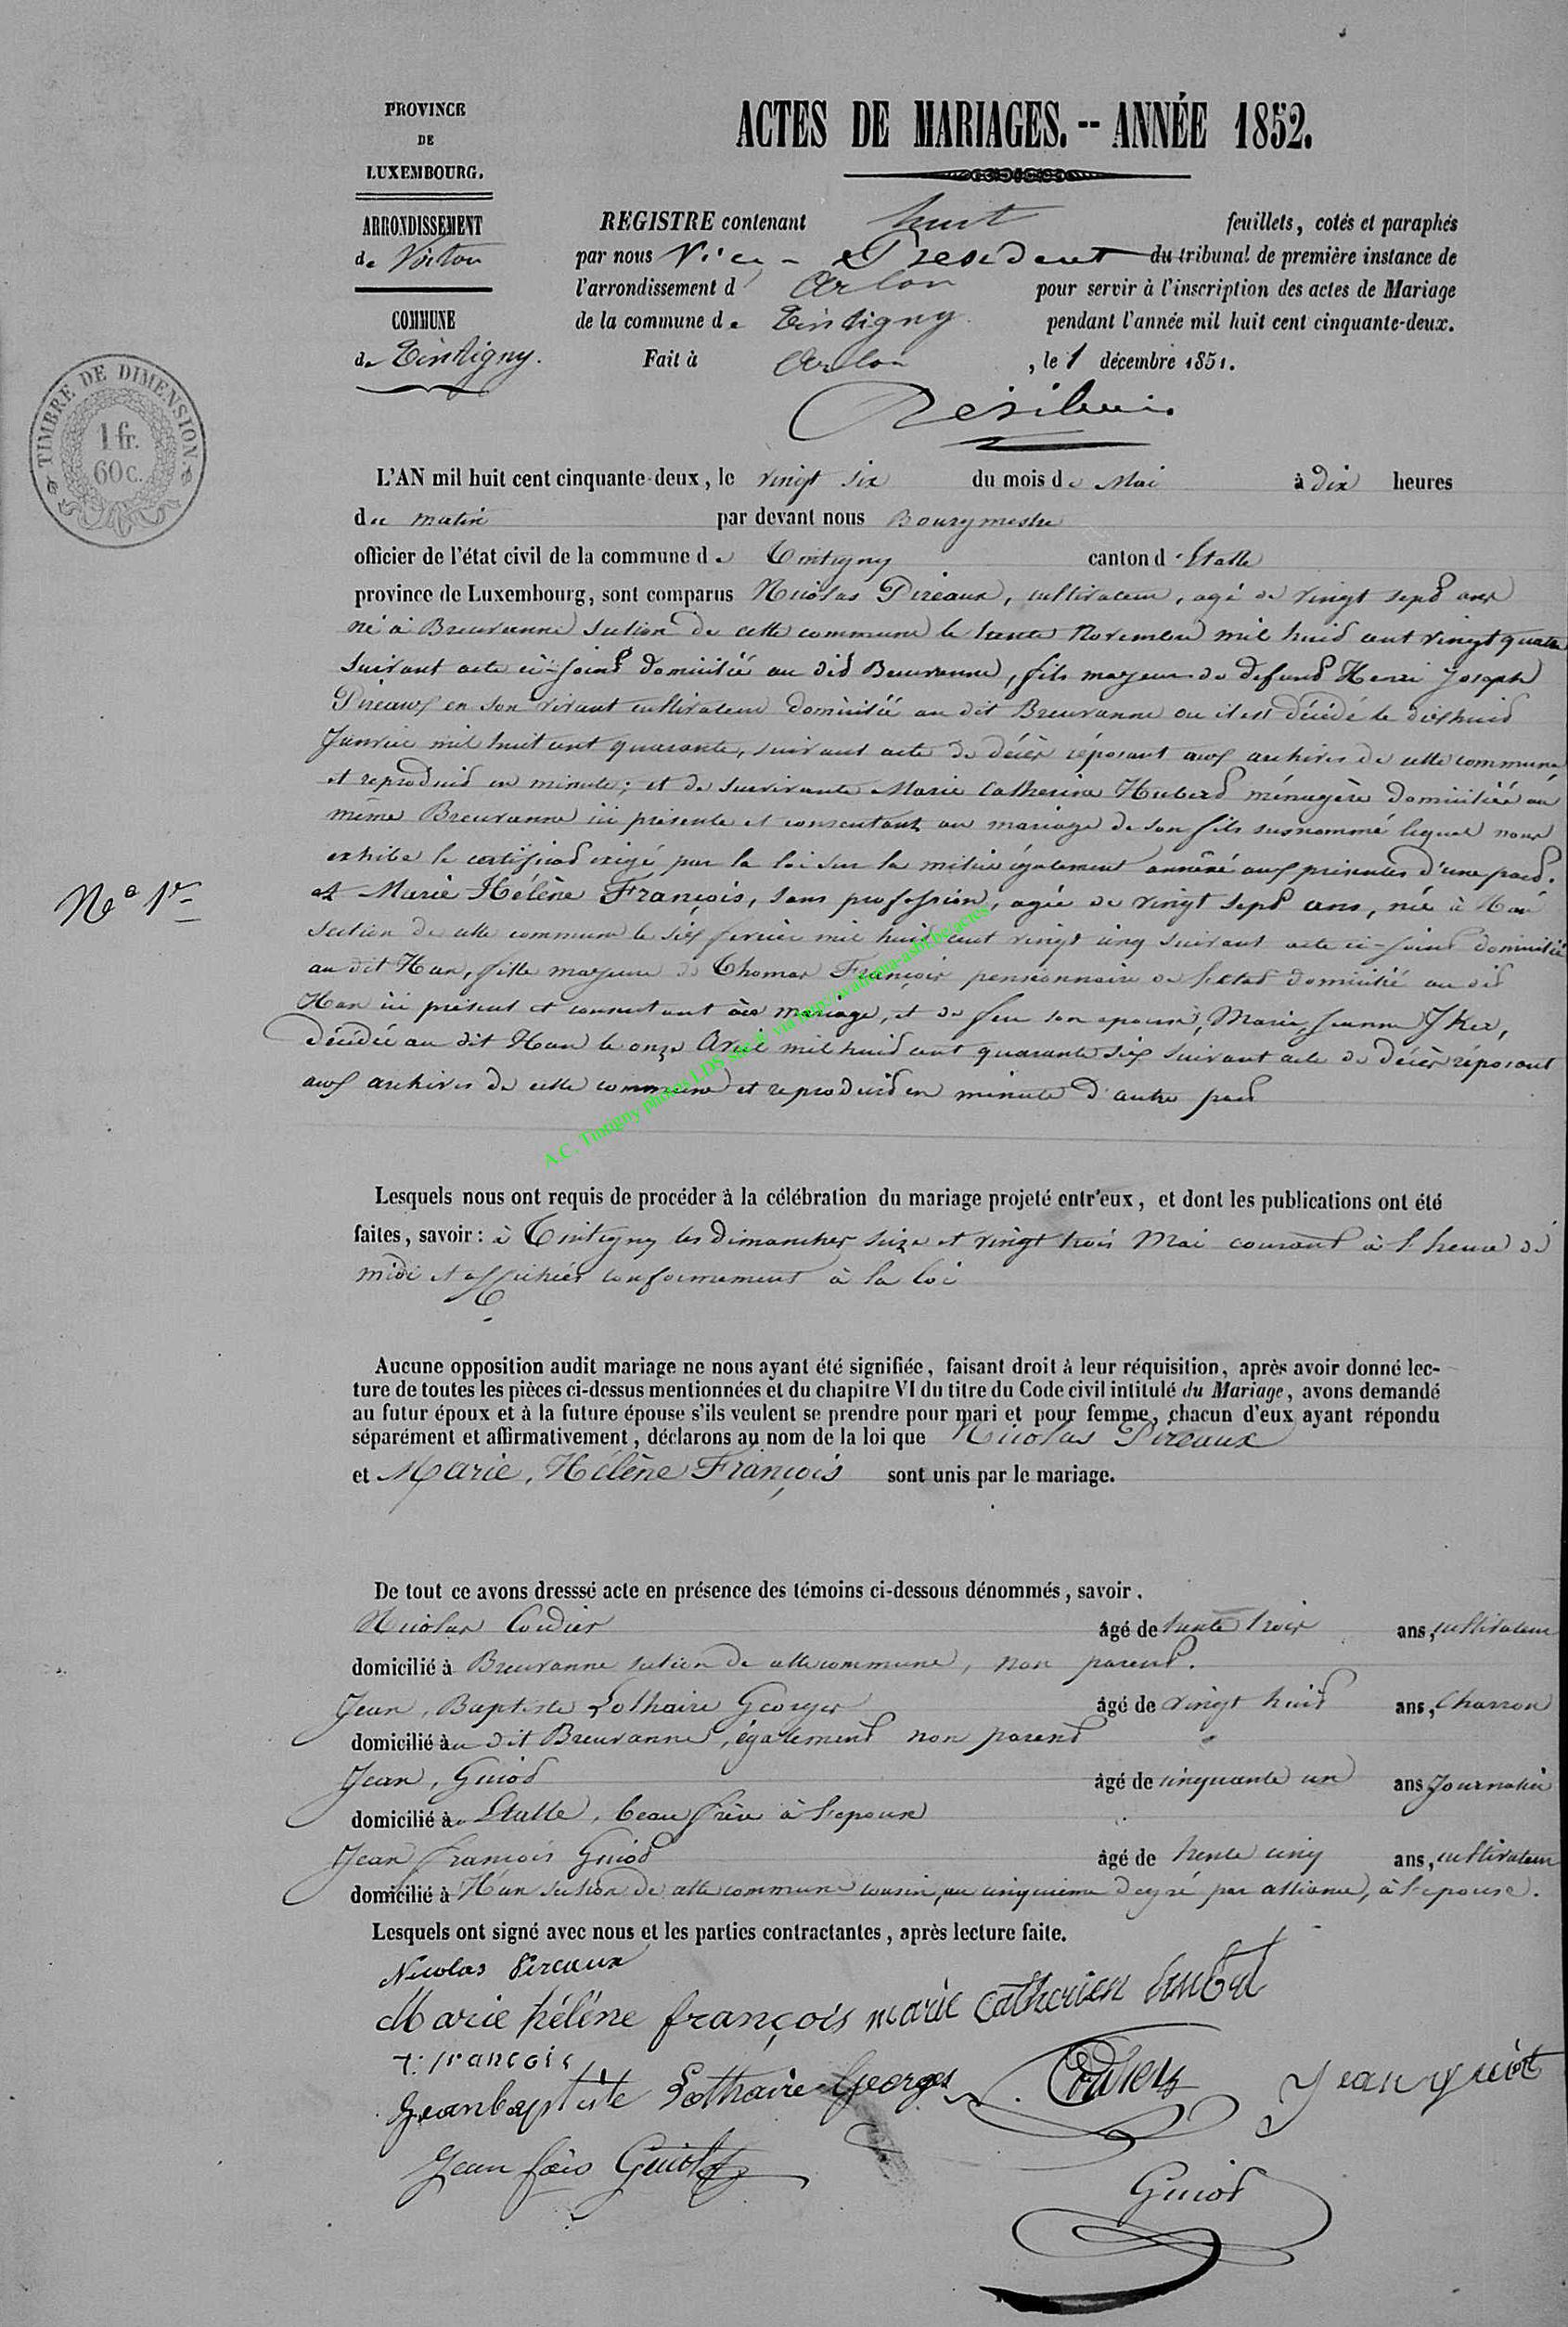 PROVINCE
DE
LUXEMBOURG.
ARRONDISSEMENT
de Virton
COMMUNE
de Tintigny.
TIMBRE DE DIMENSION
1 fr.
60 c.
ACTES DE MARIAGES. -- ANNÉE 1852.
REGISTRE contenant huit feuillets, cotés et paraphés
par nous Vice-Président du tribunal de première instance de
l'arrondissement d Arlon pour servir à l'inscription des actes de Mariage
de la commune de Tintigny pendant l'année mil huit cent cinquante-deux.
Fait à Arlon, le 1 décembre 1851.
L'AN mil huit cent cinquante-deux, le vingt six du mois de Mai à dix heures
du matin par devant nous Bourgmestre
officier de l'état civil de la commune de Tintigny canton d'Etalle
province de Luxembourg, sont comparus Nicolas Pireaux, cultivateur, agé de vingt sept ans
né à Breuvanne section de cette commune le trente Novembre mil huit cent vingt quatre
suivant acte ci-joint domicilié au dit Breuvanne, fils majeur de defunt Henri Joseph
Pireaux en son vivant cultivateur domicilié au dit Breuvanne ou il est décédé le dix huit
Janvier mil huit cent quarante, suivant acte de décès réposant aux archives de cette commune
et reproduit en minute; et de survivante Marie Catherine Hubert ménagère domiciliée au
même Breuvanne ici présente et consentant au mariage de son fils susnommé lequel nous
exhibe le certificat exigé par la loi sur la milice également annéxé aux présentes d'une part.
N° 1er
et Marie Hélène François, sans profession, agée de vingt sept ans, née à Han
section de cette commune le six fevrier mil huit cent vingt cinq suivant acte ci-joint domiciliée
au dit Han, fille majeure de Thomas François pensionnaire de l'etat domicilié au dit
Han ici présent et consentant à ce mariage, et de feu son epouse, Marie, Jeanne
décédée au dit Han le onze Avril mil huit cent quarante six suivant acte de décès réposant
aux archives de cette commune et reproduit en minute d'autre part
A.C. Tintigny photos LDS via http://
Lesquels nous ont requis de procéder à la célébration du mariage projeté entr'eux, et dont les publications ont été
faites, savoir: à Tintigny les dimanches seize et vingt trois Mai courant à l'heure de
midi et affichées conformement à la loi
Aucune opposition audit mariage ne nous ayant été signifiée, faisant droit à leur réquisition, après avoir donné lec-
ture de toutes les pièces ci-dessus mentionnées et du chapitre VI du titre du Code civil intitulé du Mariage, avons demandé
au futur époux et à la future épouse s'ils veulent se prendre pour mari et pour femme, chacun d'eux ayant répondu
séparément et affirmativement, déclarons au nom de la loi que Nicolas Pireaux
et Marie, Hélène François sont unis par le mariage.
De tout ce avons dresssé acte en présence des témoins ci-dessous dénommés, savoir.
Nicolas Cordier âgé de trente trois ans, cultivateur
domicilié à Breuvanne section de cette commune, non parent.
Jean, Baptiste Lothaire Georges âgé de vingt huit ans, Charron
domicilié au dit Breuvanne, également non parent
Jean, Guiot âgé de cinquante un ans Journalier
domicilié à Etalle, beau frère à l'epoux
Jean François Guiot âgé de trente cinq ans, cultivateur
domicilié à Han section de cette commune cousin, au cinquieme degré par alliance, à l'epouse.
Lesquels ont signé avec nous et les parties contractantes, après lecture faite.
Nicolas Pireaux
Marie hélène françois marie catherien hubert
t. francois
Jeanbaptiste Lothaire Georges Cordier Jean guiot
Jean fcois Guiot
Guiot